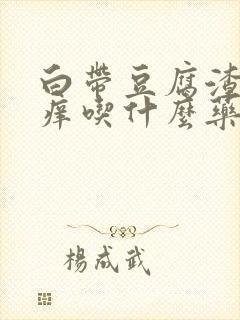 白帶豆腐渣
痒喫什麽藥
楊成武